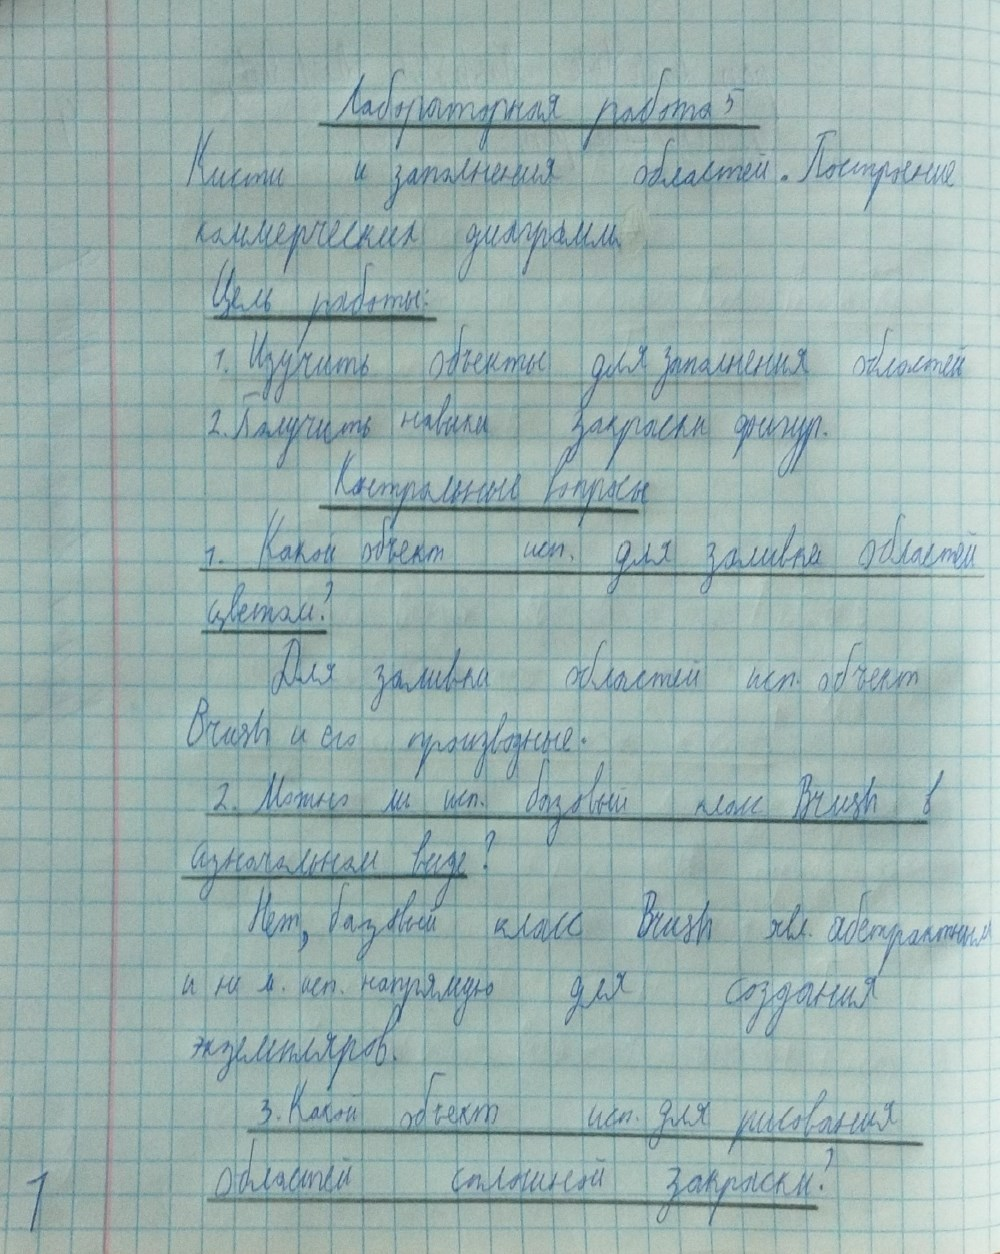 Лабораторная работа 5
Кисти и заполнения областей. Построение
коммерческих диаграмм
Цель работы:
1. Изучить объекты для заполнения областей
2. Получить навыки закраски фигур.
Контрольные вопросы
1. Какой объект исп. для заливки областей
цветом?
Для заливки областей исп. объект
Brush и его производные.
2. Можно ли исп. базовый класс Brush в
изначальном виде?
Нет, базовый класс Brush явл. абстрактным
и не м. исп. напрямую для создания
экземпляров.
3. Какой объект исп. для рисования
областей сплошной закраски?
1